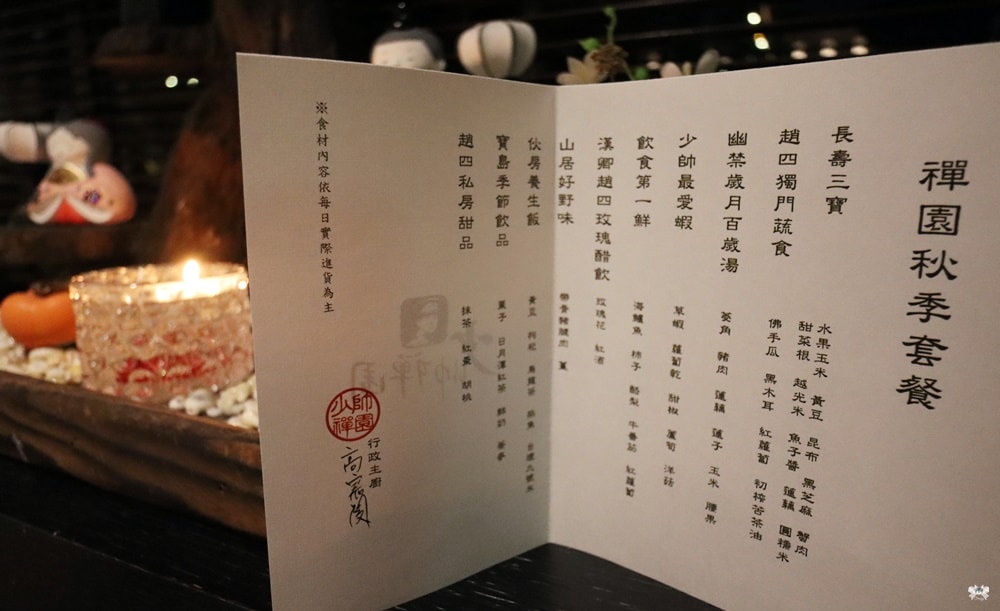 禪園秋季套餐
長壽三寶
水果玉米 黃豆 昆布 黑芝麻 蟹肉
甜菜根 越光米 魚子醬 蓮藕 圓糯米
趙四獨門蔬食
佛手瓜 黑木耳 紅蘿蔔 初榨苦茶油
幽禁歲月百歲湯
菱角 豬肉 蓮藕 蓮子 玉米 腰果
少帥最愛蝦
草蝦 蘿蔔乾 甜椒 蘆筍 洋菇
飲食第一鮮
海鱸魚 柿子 酪梨 牛番茄 紅蘿蔔
漢卿趙四玫瑰醋飲
玫瑰花 紅酒
山居好野味
帶骨豬腱肉
伙房養生飯
黃豆 枸杞 烏龍茶
寶島季節飲品
栗子 日月潭紅茶 鮮奶
趙四私房甜品
抹茶 紅棗 胡桃
※食材內容依每日實際進貨為主
少帥禪園
行政主廚